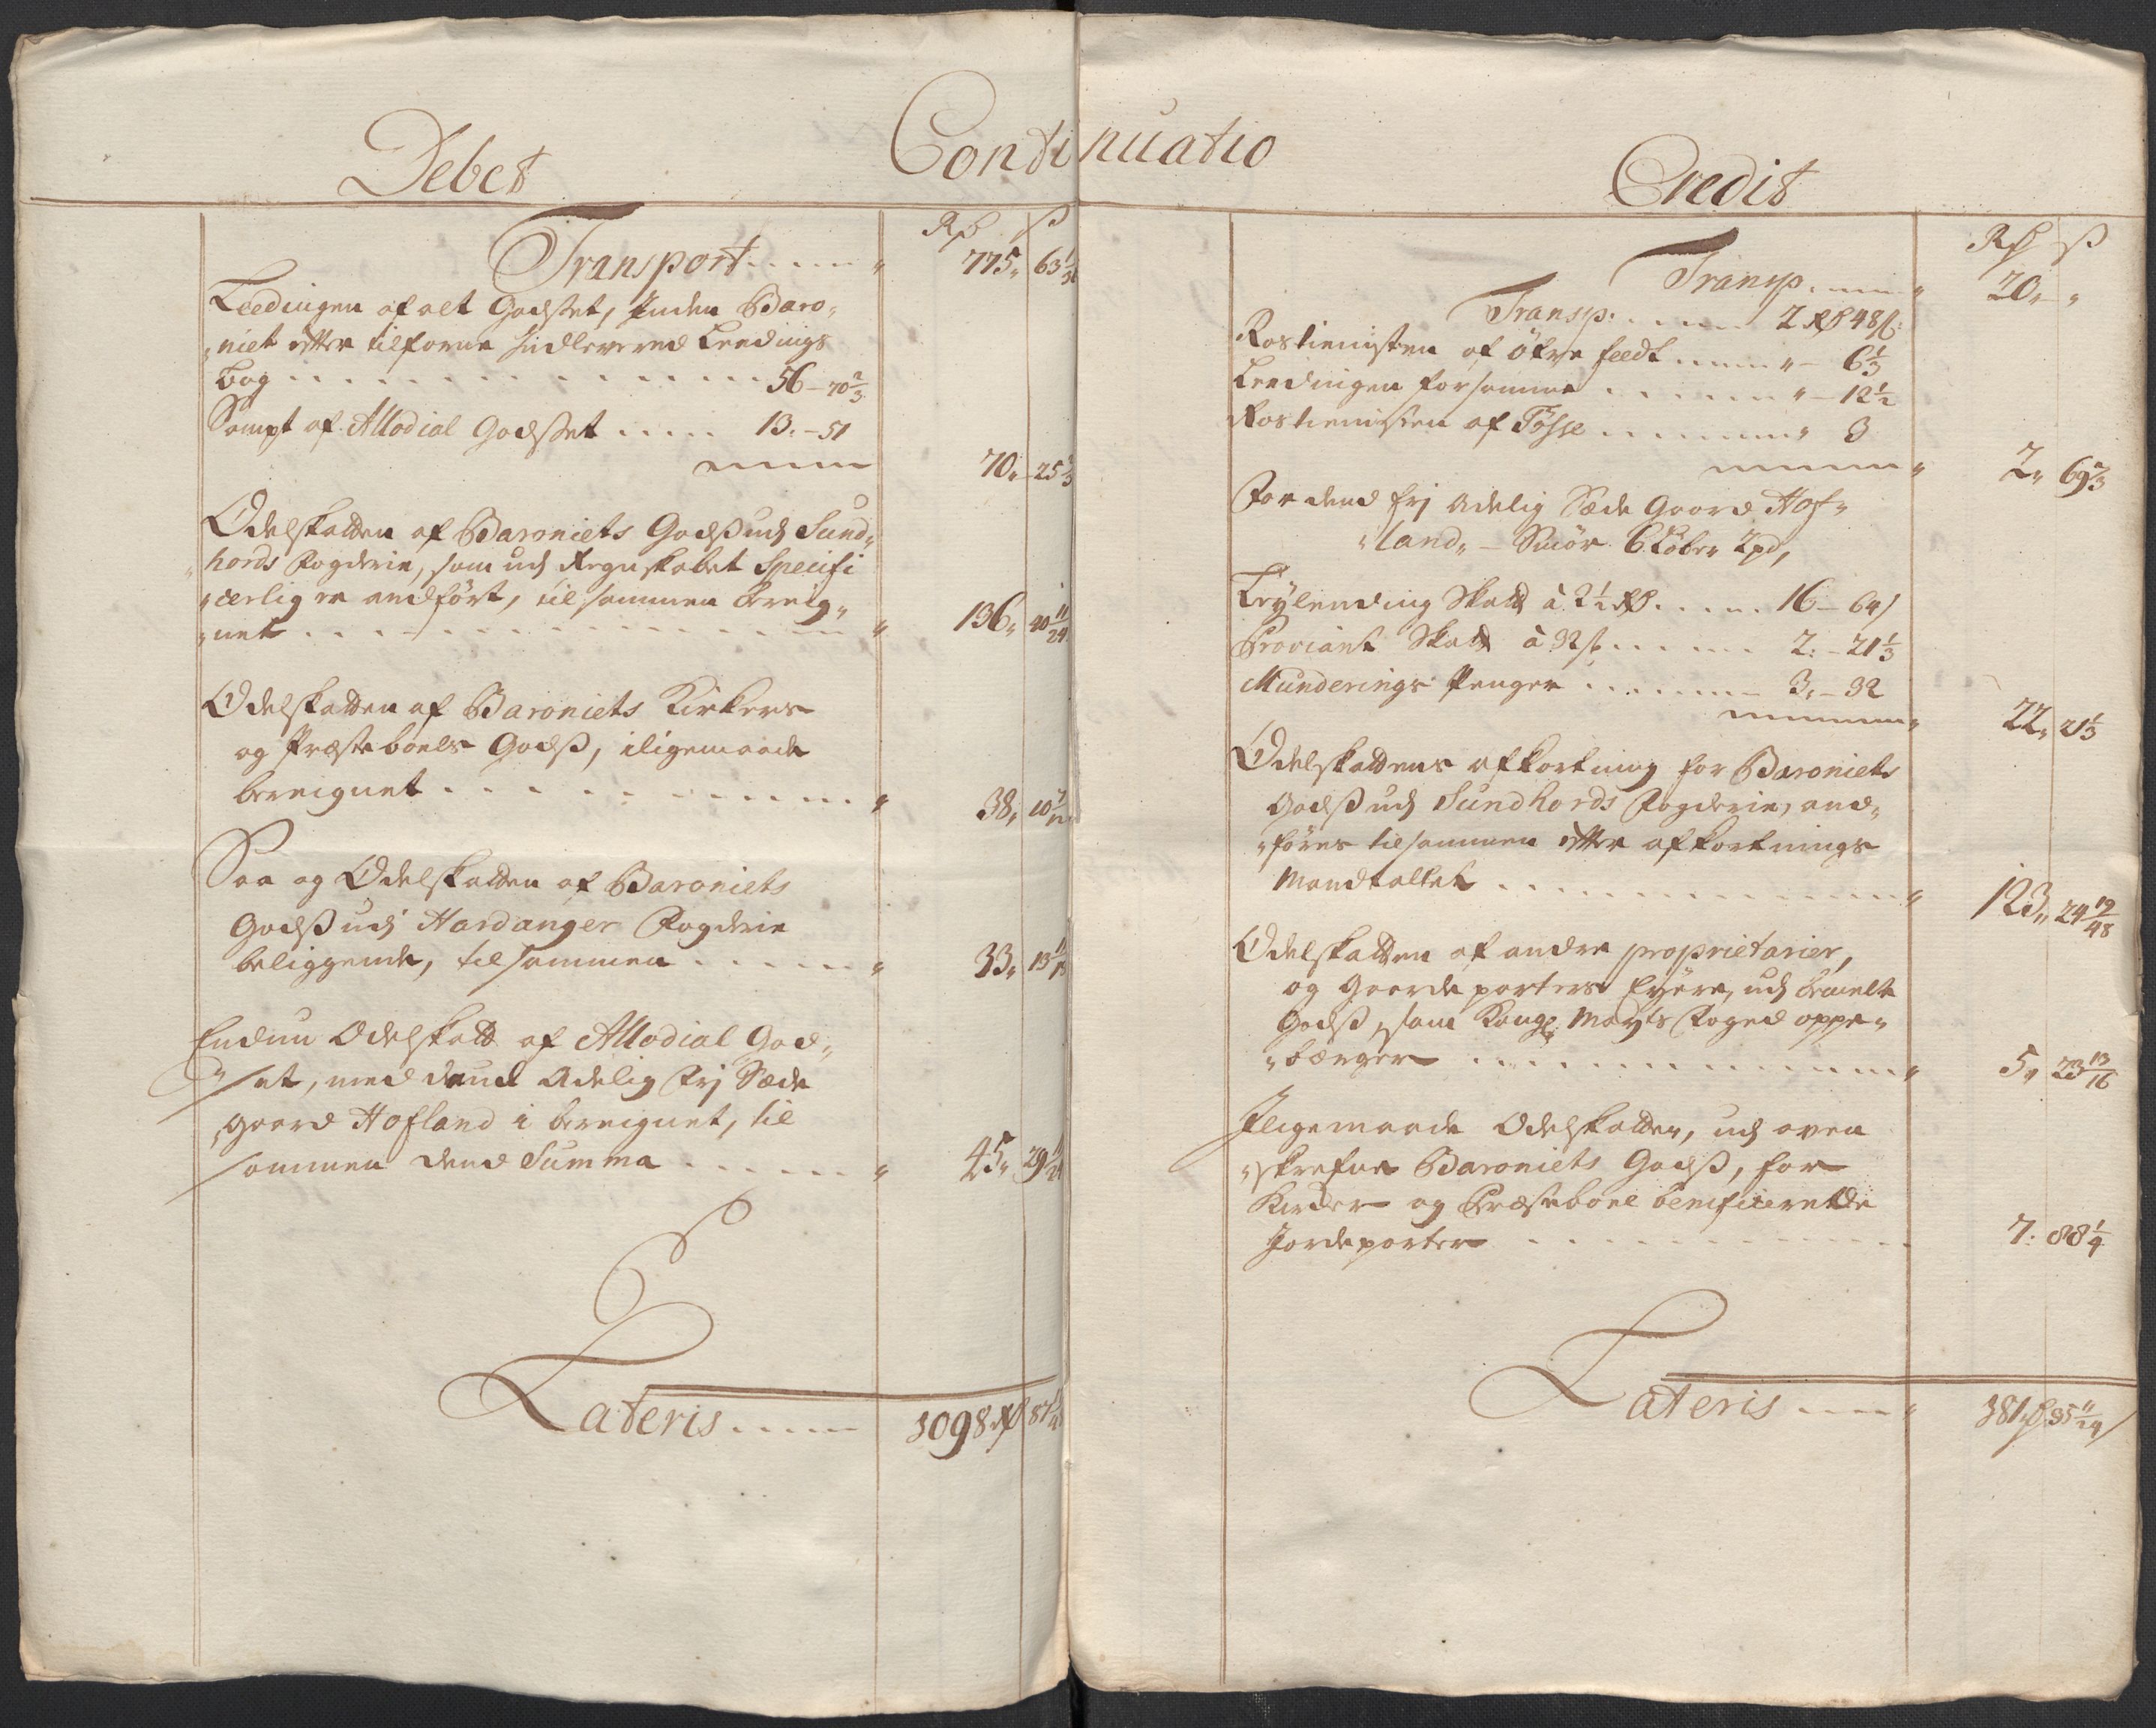 Continuatio
Debet
Rd ß
Transport ..... 775„ 63 1/
Leedingen af alt Godset, Inden Baro„
„niet efter tilforne Indlevered Leedings
bog ..... 56 - 70 2/3
Sampt af Allodial Godset ..... 13. - 51
70„ 25 2/3
Odelskatten af Baroniets Godß udj Sund„
„hords Fogderie, som udj Regnskabet Specifi
„cerlig er andført, til sammen bereig„
„net ..... 136„ 20 11/24
Odelskatten af Baroniets Kirkers
og Præsteboels Godß, iligemaade
bereignet ..... 38„ 10
Saa og Odelskatten af Baroniets
Godß udj Hardanger Fogderie
beliggende, tilsammen ..... 33„ 13
Endnu Odelskatt af Allodial God„
„set, med dend Adelig Frj Sæde
„gaard Hofland i bereignet, til
sammen dend Summa ..... 45„ 29
Lateris ..... 1098 Rd 87
Credit
Rd ß
Transp. ..... 20„ „
Transp: ..... 2 Rd 48 ß:
Rostienisten af Öfre feedt ..... „ - 6 1/3
Leedingen for samme ..... „ - 12 1/2
Rostienisten af Tøsse ..... „ 3
2„ 69 2/3
For dend frj Adelig Sæde Gaard Hof„
„land„ - Smör 6 Løber 2 pd,
Leylending Skatt à 2 1/2 Rd ..... 16 - 64
Proviant Skatt à 32 ß ..... 2. - 21 1/3
Munderings Penger ..... 3. - 32
22„ 21 1/3
Odelskattens afkortning for Baroniets
Godß udj Sundhords Fogderie, and„
„föres tilsammen efter afkortnings
Mandtallet ..... 123„ 24 19/48
Odelskatten af andre proprietarier,
og Gaarde parters Eyere, udj bemelte
Godß, som Kongl: Mayts Foged oppe„
„bærger ..... 5„ 23 13/16
Iligemaade Odelskatten, udj oven
„skrefne Baroniets Godß, for
Kircker og Præsteboel beneficerede
Jordeparter ..... 7. 88 1/4
Lateris ..... 381 Rd 35 11/24